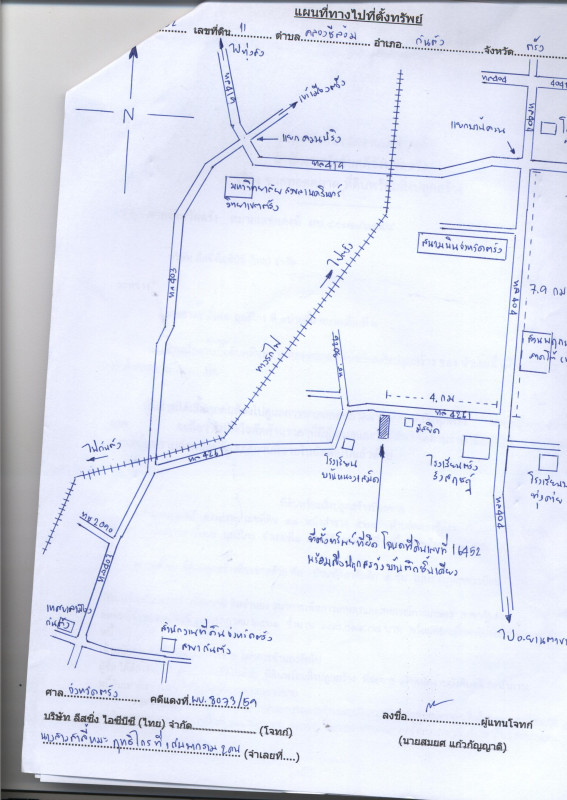 แผนที่ทางไปที่ตั้งทรัพย์
เลขที่ดิน 11 ตำบล คลองชีล้อม อำเภอ กันตัง จังหวัด ตรัง
ไปทุ่งค่าย
ทล419
เข้าเมืองตรัง
N
แยกควนปริง
ทล419
ทล404
ทล404
แยกบ้านควน
มหาวิทยาลัย สงขลานครินทร์
วิทยาเขตตรัง
สนามบินจังหวัดตรัง
ไปตรัง
ทล403
ทล404
7.9 กม
ทางรถไฟ
4 กม
ทล4261
มัสยิด
ไปกันตัง
ทล4261
โรงเรียน
บ้านหนองเสม็ด
โรงเรียนตรัง
รังสฤษฎ์
โรงเรียน
ทุ่งค่าย
ทล404
ที่ตั้งทรัพย์ที่ยึด โฉนดที่ดินเลขที่ 16452
พร้อมสิ่งปลูกสร้างบ้านตึกชั้นเดียว
ทล403
เทศบาลเมือง
กันตัง
สำนักงานที่ดินจังหวัดตรัง
สาขากันตัง
ศาล จังหวัดตรัง คดีแดงที่ ผบ.8073/59
บริษัท ลีสซิ่ง ไอซีบีซี (ไทย) จำกัด (โจทก์)
ลงชื่อ ผู้แทนโจทก์
(นายสมยศ แก้วกัญญาติ)
(จำเลยที่....)